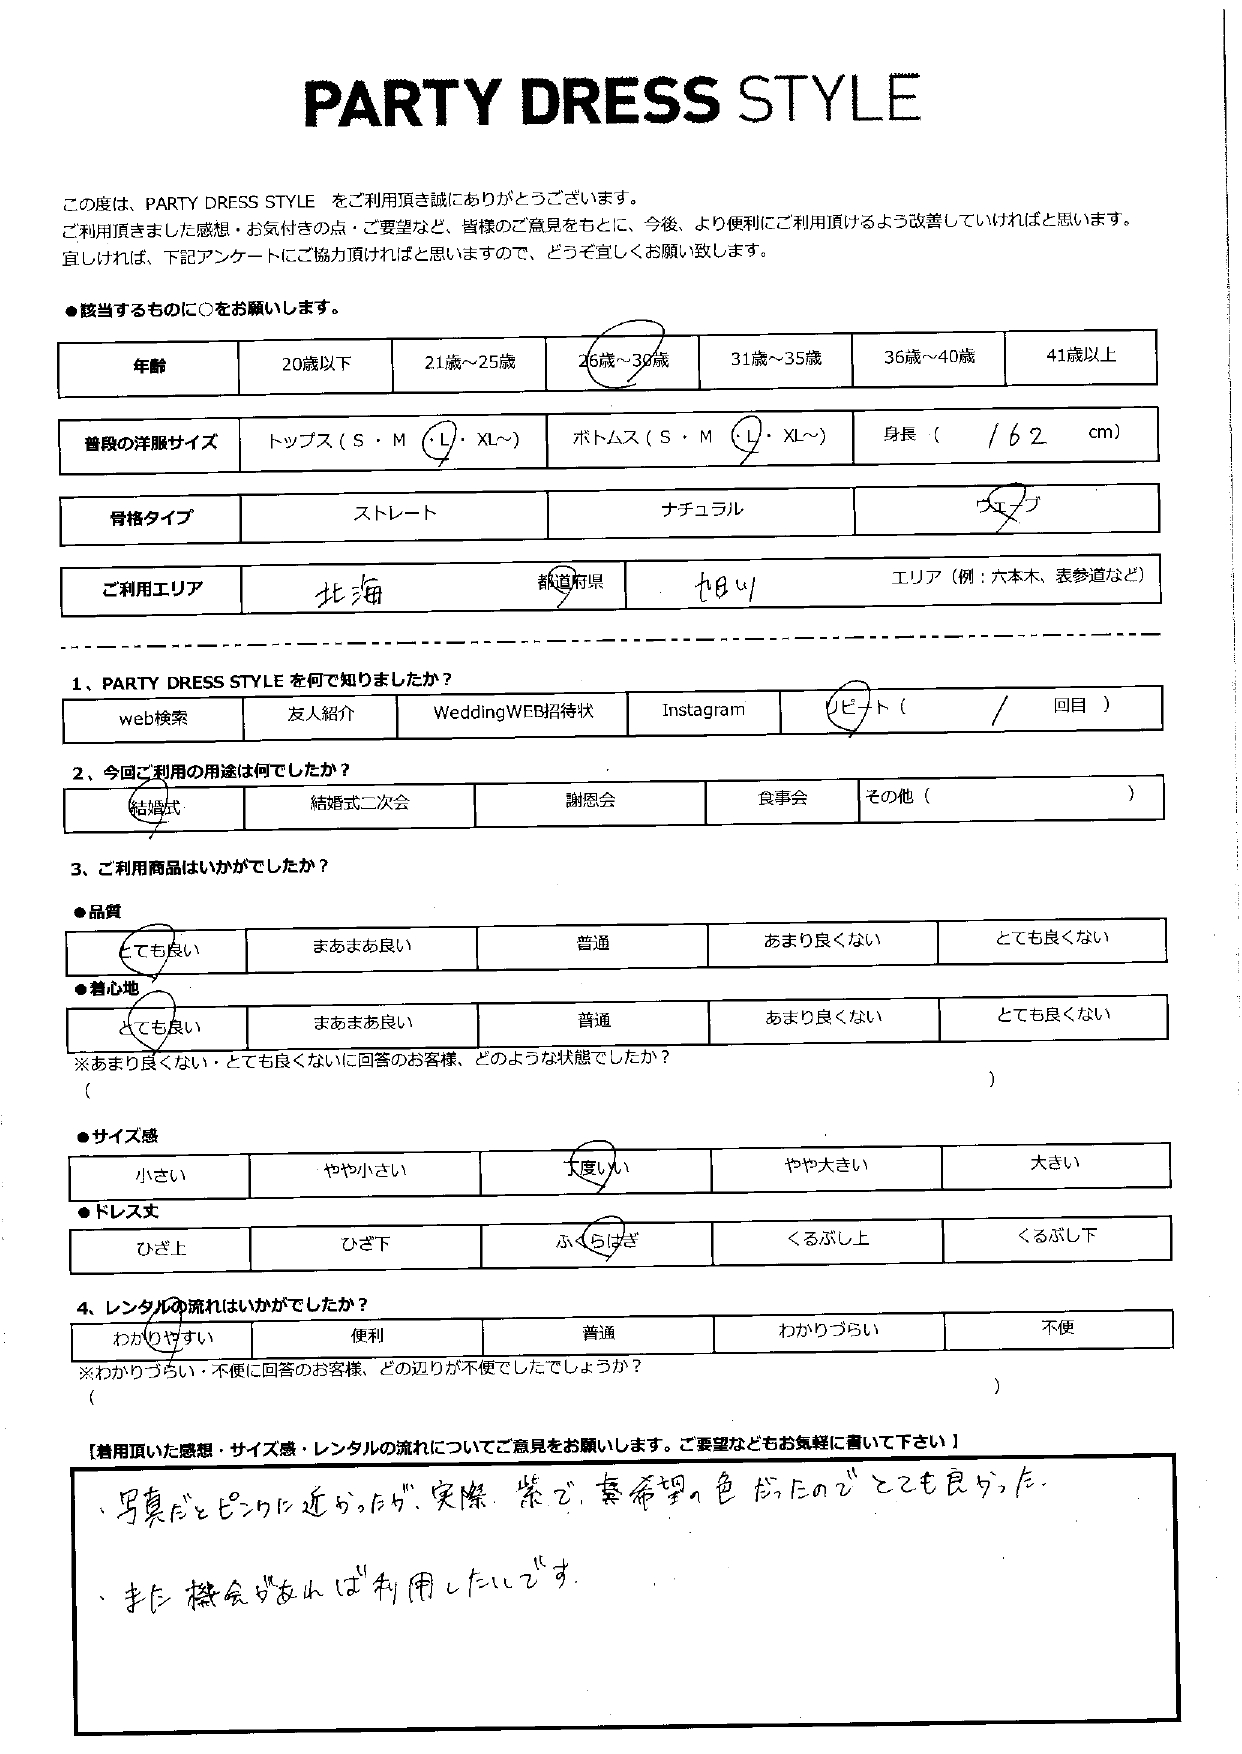 PARTY DRESS STYLE
この度は、PARTY DRESS STYLE をご利用頂き誠にありがとうございます。
ご利用頂きました感想・お気付きの点・ご要望など、皆様のご意見をもとに、今後、より便利にご利用頂けるよう改善していければと思います。
宜しければ、下記アンケートにご協力頂ければと思いますので、どうぞ宜しくお願い致します。
●該当するものに○をお願いします。
年齢 20歳以下 21歳～25歳 26歳～30歳 31歳～35歳 36歳～40歳 41歳以上
普段の洋服サイズ トップス(S・M・L・XL～) ボトムス(S・M・L・XL～) 身長( 162 cm)
骨格タイプ ストレート ナチュラル ウェーブ
ご利用エリア 北海 都道府県 旭川 エリア(例:六本木、表参道など)
1、PARTY DRESS STYLEを何で知りましたか?
web検索 友人紹介 WeddingWEB招待状 Instagram リピート( / 回目 )
2、今回ご利用の用途は何でしたか?
結婚式 結婚式二次会 謝恩会 食事会 その他( )
3、ご利用商品はいかがでしたか?
●品質
とても良い まあまあ良い 普通 あまり良くない とても良くない
●着心地
とても良い まあまあ良い 普通 あまり良くない とても良くない
※あまり良くない・とても良くないに回答のお客様、どのような状態でしたか?
( )
●サイズ感
小さい やや小さい 丁度いい やや大きい 大きい
●ドレス丈
ひざ上 ひざ下 ふくらはぎ くるぶし上 くるぶし下
4、レンタルの流れはいかがでしたか?
わかりやすい 便利 普通 わかりづらい 不便
※わかりづらい・不便に回答のお客様、どの辺りが不便でしたでしょうか?
( )
【着用頂いた感想・サイズ感・レンタルの流れについてご意見をお願いします。ご要望などもお気軽に書いて下さい】
・写真だとピンクに近かったが、実際、紫で、希望の色だったのでとても良かった.
・また機会があれば利用したいです.